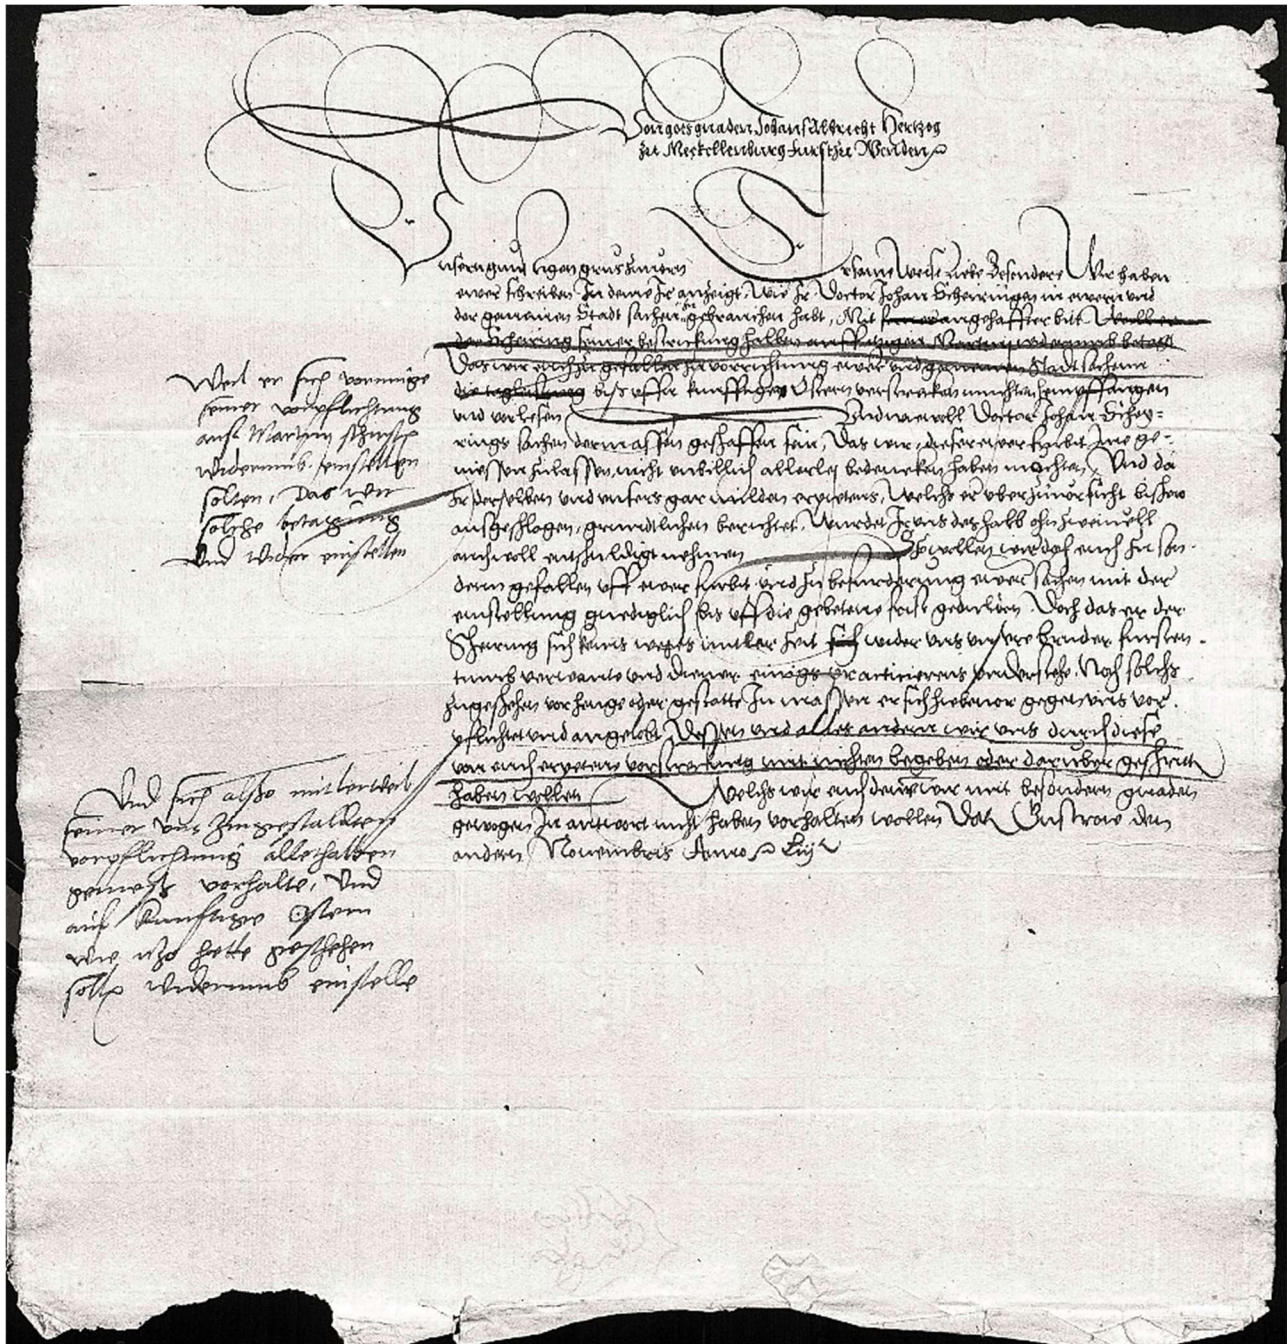 Von gots gnaden Johans Albrecht Hertzog
zu Meckellenburg furst zu Wenden
Unsern gunstigen grus zuuorn Ersame Weise Liebe Besondere Wir haben
ewer schreiben In deme Ir anzeigt, Wie Ir Doctor Johan Scheiringen in ewern und
der gemeinen Stadt sachen zu gebrauchen habt, Mit angehaffter bitt Weill er
der Scheiring seiner bestrickung halben auff kunfftigen Martini widerumb betagt
Das wir euch zu gefallen zu vorrichtung ewer und gemeinen Stadt sachenn
die bis uffn kunfftigen Ostern verstrecken muchten empffangen
und vorlesen Und wiewoll Doctor Johan Schey-
rings sachen dermassen geschaffen sein, Das wir, dieser ewer furbit Ine ge-
niessen zulassen, nicht unbillich allerley bedencken haben mochten, Und da
Ir derselben und unsers gar milden erpietens, Welchs er uber zuuorsicht bishero
ausgeschlagen, grundtlichen berichtet, Wurdet Ir uns deshalb ohn zweiuell
auch woll entschuldigt nehmen So wollen wir doch euch zu son-
dern gefallen uff ewer furbit und zu befurderung ewer sachen mit der
einstellung gnediglich bis uff die gebetene frist gedulden, Doch das er der
Scheiring sich keins weges mitler zeit sich wider uns unsere bruder fursten-
tumb verwante und diener einigs practicierens understehe, Noch solchs
zugeschehen vorhenge oder gestatte In massen er sich hiebeuor gegen uns vor-
pflichtet und angelobt, Dessen und alles andern wir uns durch diese
von euch erpetene vorstreckung mit nichten begeben oder daruber geschritten
haben wollen Welchs wir euch denen wir mit besondern gnaden
gewogen In antwort nicht haben vorhalten wollen Dat Gustrow den
andern Novembris Anno Liij
Weil er sich vormuge
seiner vorpflichtung
auff Martini schirst
widerumb einstellen
solten, Das wir
solche betagung
Und wider einstellen
Und sich also mitlerweil
seiner uns zugestalten
vorpflichtung allenthalben
gemess vorhalte, Und
auf kunftige Ostern
wie itzo hette geschehen
solln widerumb einstelle